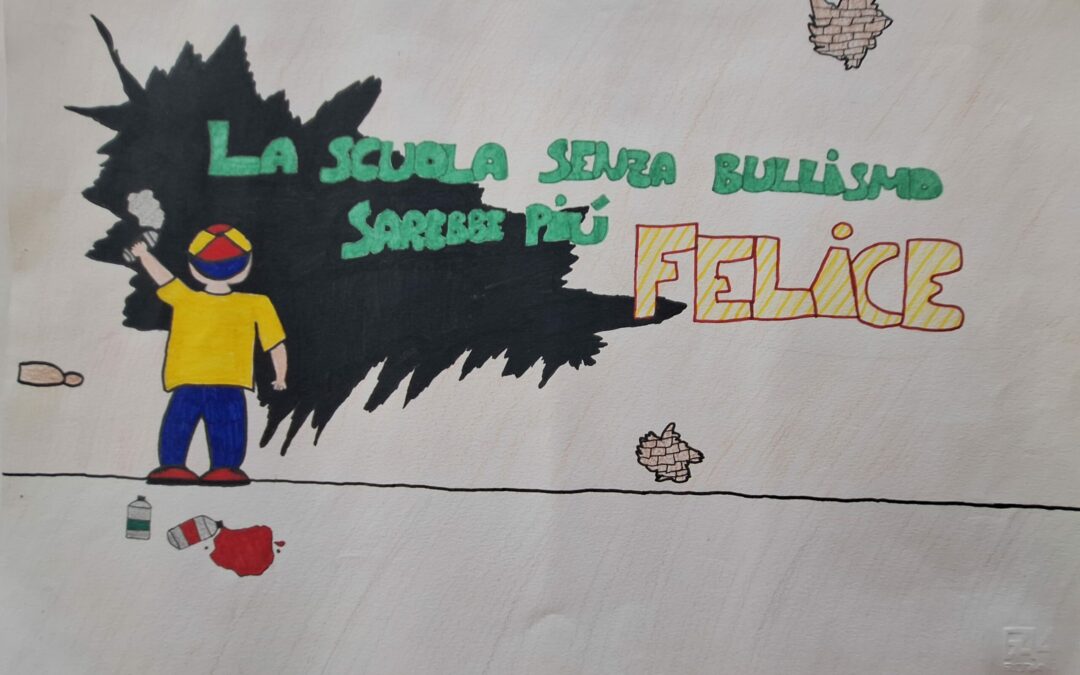 LA SCUOLA SENZA BULLiSMO
SAREBBE PiÚ
FELiCE